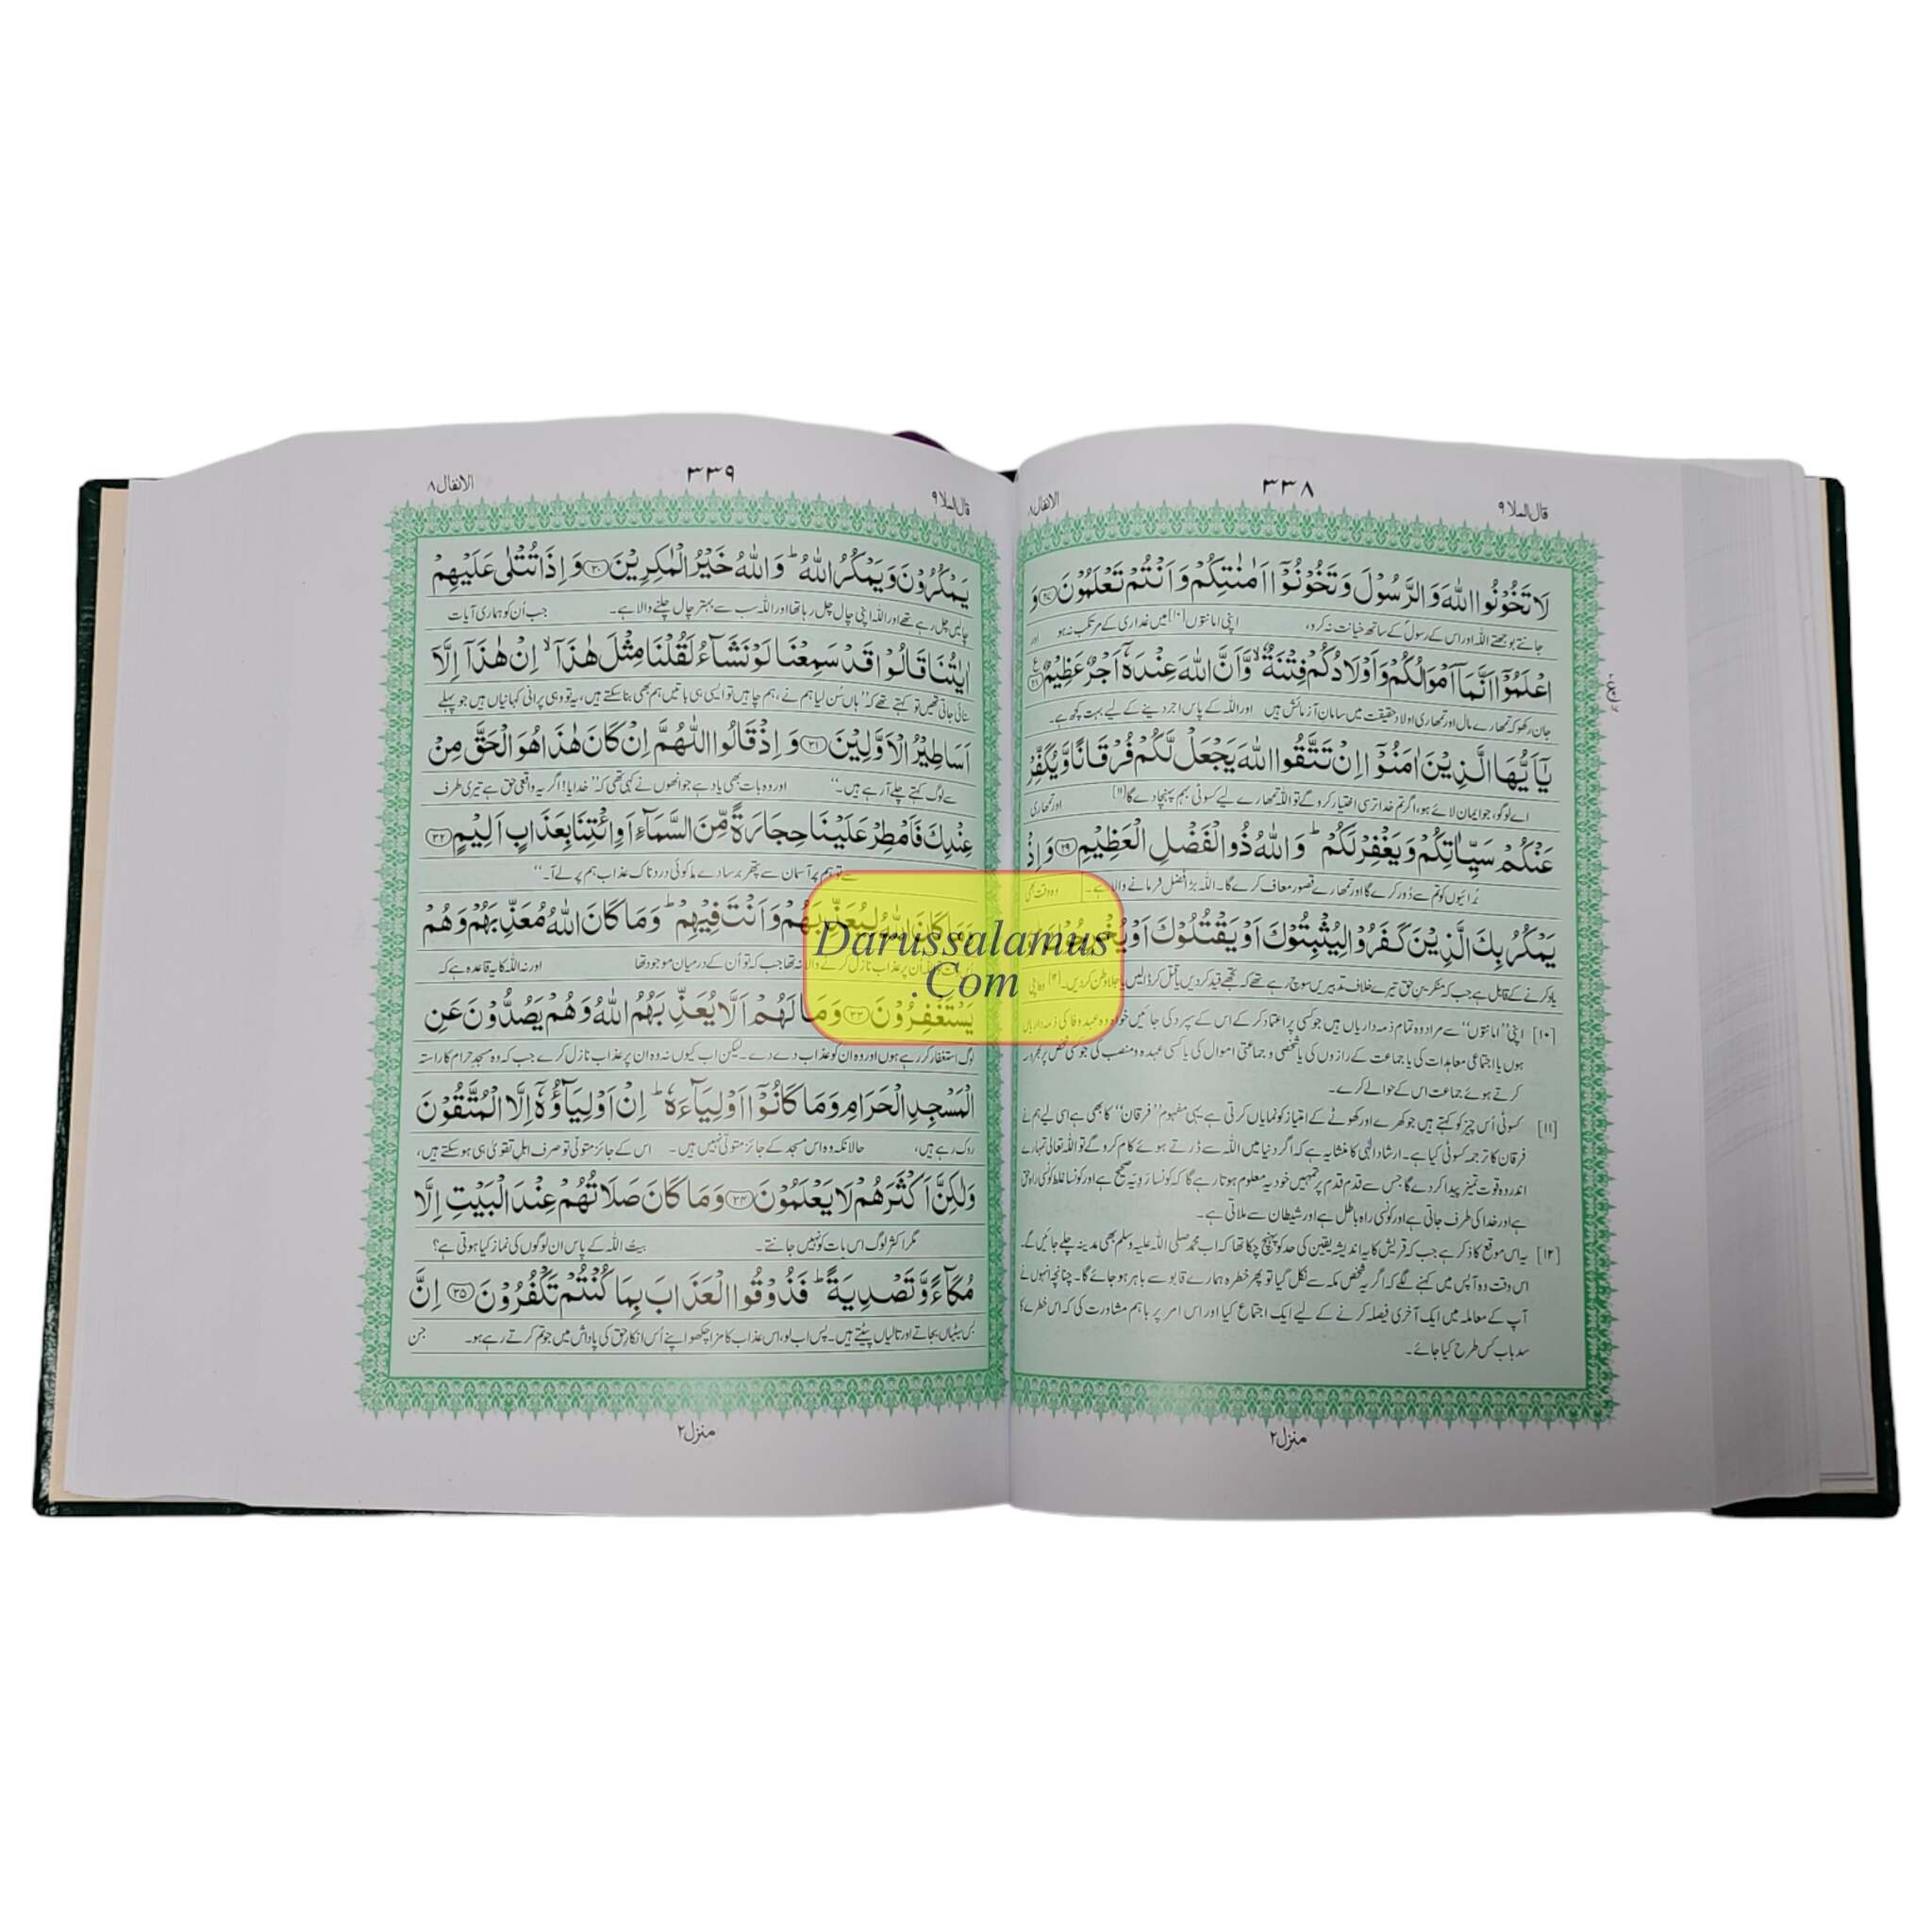 قال الملا ٩
٣٣٨
الانفال ٨
لَا تَخُوْنُوا اللّٰهَ وَالرَّسُوْلَ وَتَخُوْنُوْٓا اَمٰنٰتِكُمْ وَاَنْتُمْ تَعْلَمُوْنَ ﴿۲۷﴾ وَ
جانتے بوجھتے اللہ اور اس کے رسولؐ کے ساتھ خیانت نہ کرو، اپنی امانتوں [۱۰] میں غداری کے مرتکب نہ ہو اور
اعْلَمُوْٓا اَنَّمَآ اَمْوَالُكُمْ وَاَوْلَادُكُمْ فِتْنَةٌ ۙ وَّاَنَّ اللّٰهَ عِنْدَهٗٓ اَجْرٌ عَظِيْمٌ ﴿۲۸﴾
جان رکھو کہ تمہارے مال اور تمہاری اولاد حقیقت میں سامانِ آزمائش ہیں اور اللہ کے پاس اجر دینے کے لیے بہت کچھ ہے۔
يٰٓاَيُّهَا الَّذِيْنَ اٰمَنُوْٓا اِنْ تَتَّقُوا اللّٰهَ يَجْعَلْ لَّكُمْ فُرْقَانًا وَّيُكَفِّرْ
اے لوگو، جو ایمان لائے ہو، اگر تم خدا ترسی اختیار کرو گے تو اللہ تمہارے لیے کسوٹی بہم پہنچا دے گا [۱۱] اور تمہاری
عَنْكُمْ سَيِّاٰتِكُمْ وَيَغْفِرْ لَكُمْ ؕ وَاللّٰهُ ذُو الْفَضْلِ الْعَظِيْمِ ﴿۲۹﴾ وَاِذْ
بُرائیوں کو تم سے دُور کرے گا اور تمہارے قصور معاف کرے گا۔ اللہ بڑا فضل فرمانے والا ہے۔ وہ وقت بھی
يَمْكُرُ بِكَ الَّذِيْنَ كَفَرُوْا لِيُثْبِتُوْكَ اَوْ يَقْتُلُوْكَ اَوْ يُخْرِجُوْكَ
یاد کرنے کے قابل ہے جب کہ منکرینِ حق تیرے خلاف تدبیریں سوچ رہے تھے کہ تجھے قید کر دیں یا قتل کر ڈالیں یا جلا وطن کر دیں۔
[۱۰] اپنی ”امانتوں“ سے مراد وہ تمام ذمہ داریاں ہیں جو کسی پر اعتماد کر کے اس کے سپرد کی جائیں خواہ وہ عہد وفا کی ذمہ داریاں
ہوں یا اجتماعی معاہدات کی یا جماعت کے رازوں کی یا شخصی و جماعتی اموال کی یا کسی عہدہ و منصب کی جو کسی شخص پر بھروسہ
کرتے ہوئے جماعت اس کے حوالے کرے۔
[۱۱] کسوٹی اُس چیز کو کہتے ہیں جو کھرے اور کھوٹے کے امتیاز کو نمایاں کرتی ہے یہی مفہوم ”فرقان“ کا بھی ہے اسی لیے ہم نے
فرقان کا ترجمہ کسوٹی کیا ہے۔ ارشاد الٰہی کا منشا یہ ہے کہ اگر دنیا میں اللہ سے ڈرتے ہوئے کام کرو گے تو اللہ تعالیٰ تمہارے
اندر وہ قوت تمیز پیدا کر دے گا جس سے قدم قدم پر تمہیں خود یہ معلوم ہوتا رہے گا کہ کونسا رویہ صحیح ہے اور کونسا غلط کونسی راہ حق
ہے اور خدا کی طرف جاتی ہے اور کونسی راہ باطل ہے اور شیطان سے ملاتی ہے۔
[۱۲] یہ اس موقع کا ذکر ہے جب کہ قریش کا یہ اندیشہ یقین کی حد کو پہنچ چکا تھا کہ اب محمد صلی اللہ علیہ وسلم بھی مدینہ چلے جائیں گے۔
اس وقت وہ آپس میں کہنے لگے کہ اگر یہ شخص مکہ سے نکل گیا تو پھر خطرہ ہمارے قابو سے باہر ہو جائے گا۔ چنانچہ انہوں نے
آپ کے معاملہ میں ایک آخری فیصلہ کرنے کے لیے ایک اجتماع کیا اور اس امر پر باہم مشاورت کی کہ اس خطرے کا
سدباب کس طرح کیا جائے۔
منزل ۲
قال الملا ٩
٣٣٩
الانفال ٨
يَمْكُرُوْنَ وَيَمْكُرُ اللّٰهُ ؕ وَاللّٰهُ خَيْرُ الْمٰكِرِيْنَ ﴿۳۰﴾ وَاِذَا تُتْلٰى عَلَيْهِمْ
چالیں چل رہے تھے اور اللہ اپنی چال چل رہا تھا اور اللہ سب سے بہتر چال چلنے والا ہے۔ جب اُن کو ہماری آیات
اٰيٰتُنَا قَالُوْا قَدْ سَمِعْنَا لَوْ نَشَآءُ لَقُلْنَا مِثْلَ هٰذَآ ۙ اِنْ هٰذَآ اِلَّآ
سنائی جاتی تھیں تو کہتے تھے کہ ”ہاں سُن لیا ہم نے، ہم چاہیں تو ایسی ہی باتیں ہم بھی بنا سکتے ہیں، یہ تو وہی پرانی کہانیاں ہیں جو پہلے
اَسَاطِيْرُ الْاَوَّلِيْنَ ﴿۳۱﴾ وَاِذْ قَالُوا اللّٰهُمَّ اِنْ كَانَ هٰذَا هُوَ الْحَقَّ مِنْ
سے لوگ کہتے چلے آ رہے ہیں۔“ اور وہ بات بھی یاد ہے جو انھوں نے کہی تھی کہ ”خدایا! اگر یہ واقعی حق ہے تیری طرف
عِنْدِكَ فَاَمْطِرْ عَلَيْنَا حِجَارَةً مِّنَ السَّمَآءِ اَوِ ائْتِنَا بِعَذَابٍ اَلِيْمٍ ﴿۳۲﴾
سے تو ہم پر آسمان سے پتھر برسا دے یا کوئی درد ناک عذاب ہم پر لے آ۔“
وَمَا كَانَ اللّٰهُ لِيُعَذِّبَهُمْ وَاَنْتَ فِيْهِمْ ؕ وَمَا كَانَ اللّٰهُ مُعَذِّبَهُمْ وَهُمْ
اُن پر عذاب نازل کرنے والا نہ تھا جب کہ تو اُن کے درمیان موجود تھا اور نہ اللہ کا یہ قاعدہ ہے کہ
يَسْتَغْفِرُوْنَ ﴿۳۳﴾ وَمَا لَهُمْ اَلَّا يُعَذِّبَهُمُ اللّٰهُ وَهُمْ يَصُدُّوْنَ عَنِ
لوگ استغفار کر رہے ہوں اور وہ ان کو عذاب دے دے۔ لیکن اب کیوں نہ وہ ان پر عذاب نازل کرے جب کہ وہ مسجد حرام کا راستہ
الْمَسْجِدِ الْحَرَامِ وَمَا كَانُوْٓا اَوْلِيَآءَهٗ ؕ اِنْ اَوْلِيَآؤُهٗٓ اِلَّا الْمُتَّقُوْنَ
روک رہے ہیں، حالانکہ وہ اس مسجد کے جائز متولی نہیں ہیں۔ اس کے جائز متولی تو صرف اہلِ تقویٰ ہی ہو سکتے ہیں،
وَلٰكِنَّ اَكْثَرَهُمْ لَا يَعْلَمُوْنَ ﴿۳۴﴾ وَمَا كَانَ صَلَاتُهُمْ عِنْدَ الْبَيْتِ اِلَّا
مگر اکثر لوگ اس بات کو نہیں جانتے۔ بیتُ اللہ کے پاس ان لوگوں کی نماز کیا ہوتی ہے؟
مُكَآءً وَّتَصْدِيَةً ؕ فَذُوْقُوا الْعَذَابَ بِمَا كُنْتُمْ تَكْفُرُوْنَ ﴿۳۵﴾ اِنَّ
بس سیٹیاں بجاتے اور تالیاں پیٹتے ہیں۔ پس اب لو، اس عذاب کا مزا چکھو اپنے اُس انکارِ حق کی پاداش میں جو تم کرتے رہے ہو۔ جن
منزل ۲
Darussalamus
.Com